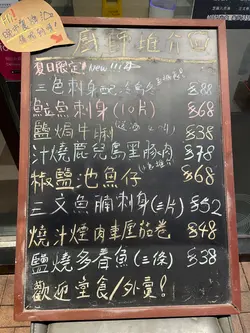 廚師推介
夏日限定! New!!!
三色刺身配 $88
鮫魚刺身(10片) $68
鹽焗牛脷 $38
汁燒鹿兒島黑豚肉 $78
椒鹽池魚仔 $68
三文魚腩刺身(三片) $52
燒汁煙肉車厘茄卷 $48
鹽燒多春魚(三條) $38
歡迎堂食/外賣!